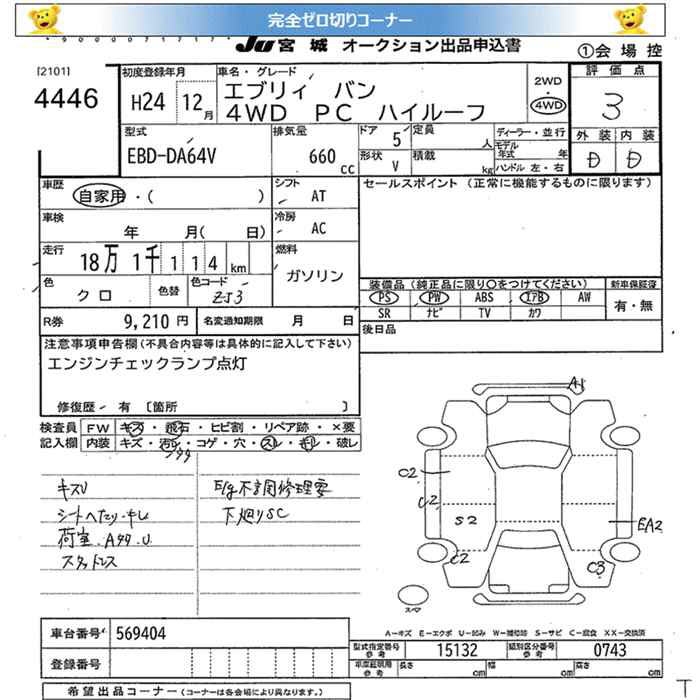 完全ゼロ切りコーナー
JU 宮城 オークション出品申込書
①会場控
[2101]
4446
初度登録年月
H24 12月
車名・グレード
エブリィ バン
4WD PC ハイルーフ
2WD
・
4WD
評価点
3
外装 内装
D D
型式
EBD-DA64V
排気量
660 cc
ドア 5
形状 V
定員 人
積載 kg
ディーラー・並行
モデル年式 年
ハンドル 左・右
車歴
自家用・( )
シフト
AT
セールスポイント (正常に機能するものに限ります)
車検
年 月( 日)
冷房
AC
走行
18万 1千 1 1 4 km
燃料
ガソリン
色
クロ
色替
色コード
ZJ3
装備品 (純正品に限り○をつけてください)
新車保証書
PS PW ABS エアB AW
有・無
SR ナビ TV カワ
R券 9,210 円
名変通知期限 月 日
後日品
注意事項申告欄 (不具合内容等は具体的に記入して下さい)
エンジンチェックランプ点灯
修復歴・有 〔箇所 〕
検査員 FW キズ・飛石・ヒビ割・リペア跡・×要
記入欄 内装 キズ・汚レ・コゲ・穴・スレ・キレ・破レ
キズU
シートへたり・キレ
荷室.Aタタ.U
スタットレス
Eg不調修理要
下廻りSC
A1
C2
U2
S2
C2
EA2
C3
スペア
A-キズ E-エクボ U-凹み W-補修跡 S-サビ C-腐食 XX-交換済
車台番号 569404
型式指定番号 参考 15132
類別区分番号 参考 0743
登録番号
車庫証明用 参考 長さ cm 幅 cm 高さ cm
希望出品コーナー (コーナーは各会場により異なります。)